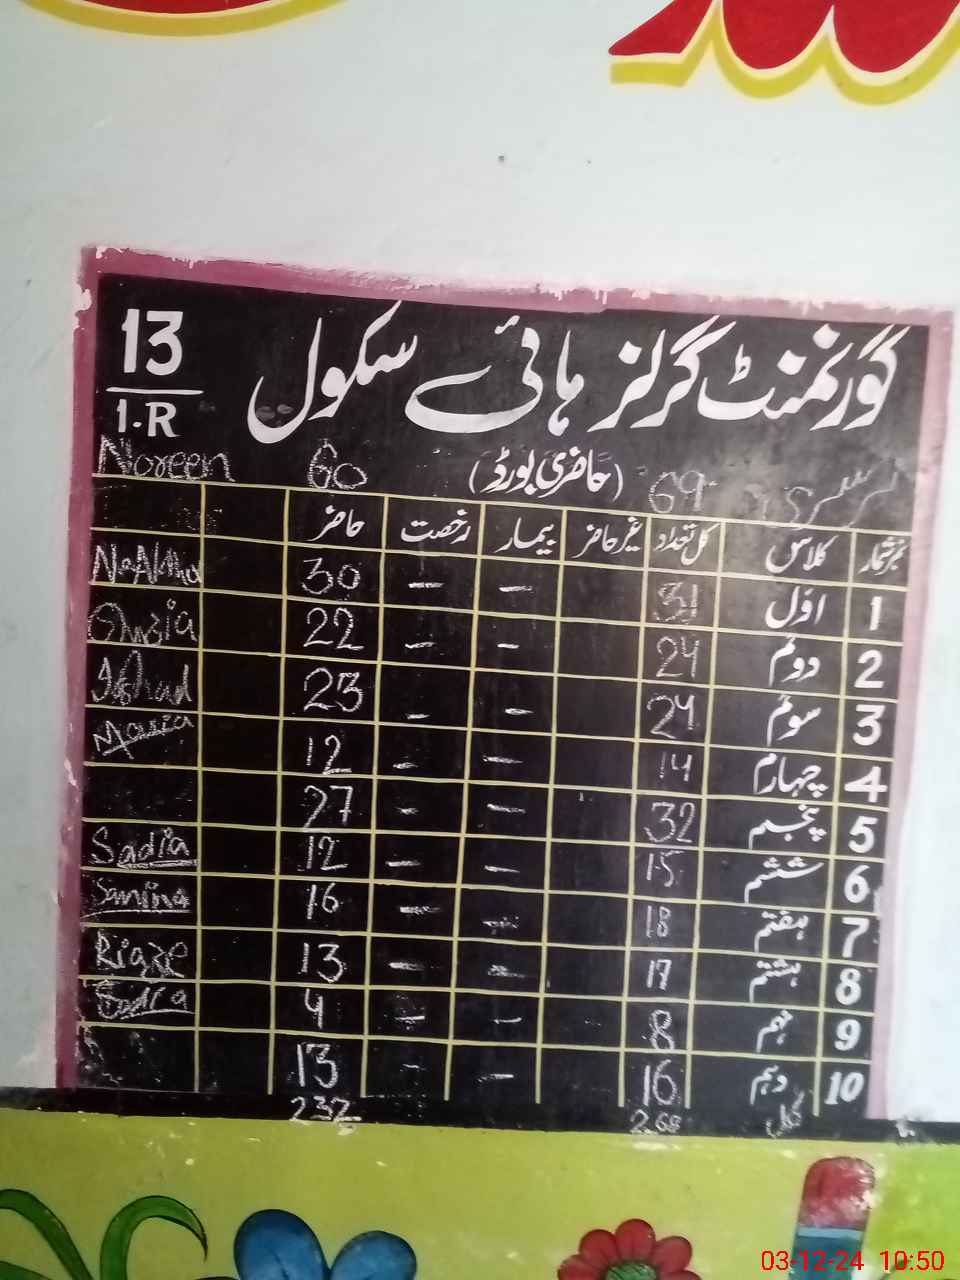 گورنمنٹ گرلز ہائی سکول 13
1.R
(حاضری بورڈ)
نرسری 69 60 Noreen
نمبر شمار کلاس کل تعداد غیر حاضر بیمار رخصت حاضر
1 اوّل 31 - - 30
2 دوئم 24 - - 22 Ghazia
3 سوئم 24 - - 23 Irshad
4 چہارم 14 - - 12 Maria
5 پنجم 32 - - 27
6 ششم 15 - - 12 Sadia
7 ہفتم 18 - - 16 Samina
8 ہشتم 17 - - 13
9 نہم 8 - - 4
10 دہم 16 - - 13
کل 268 232
03-12-24 10:50